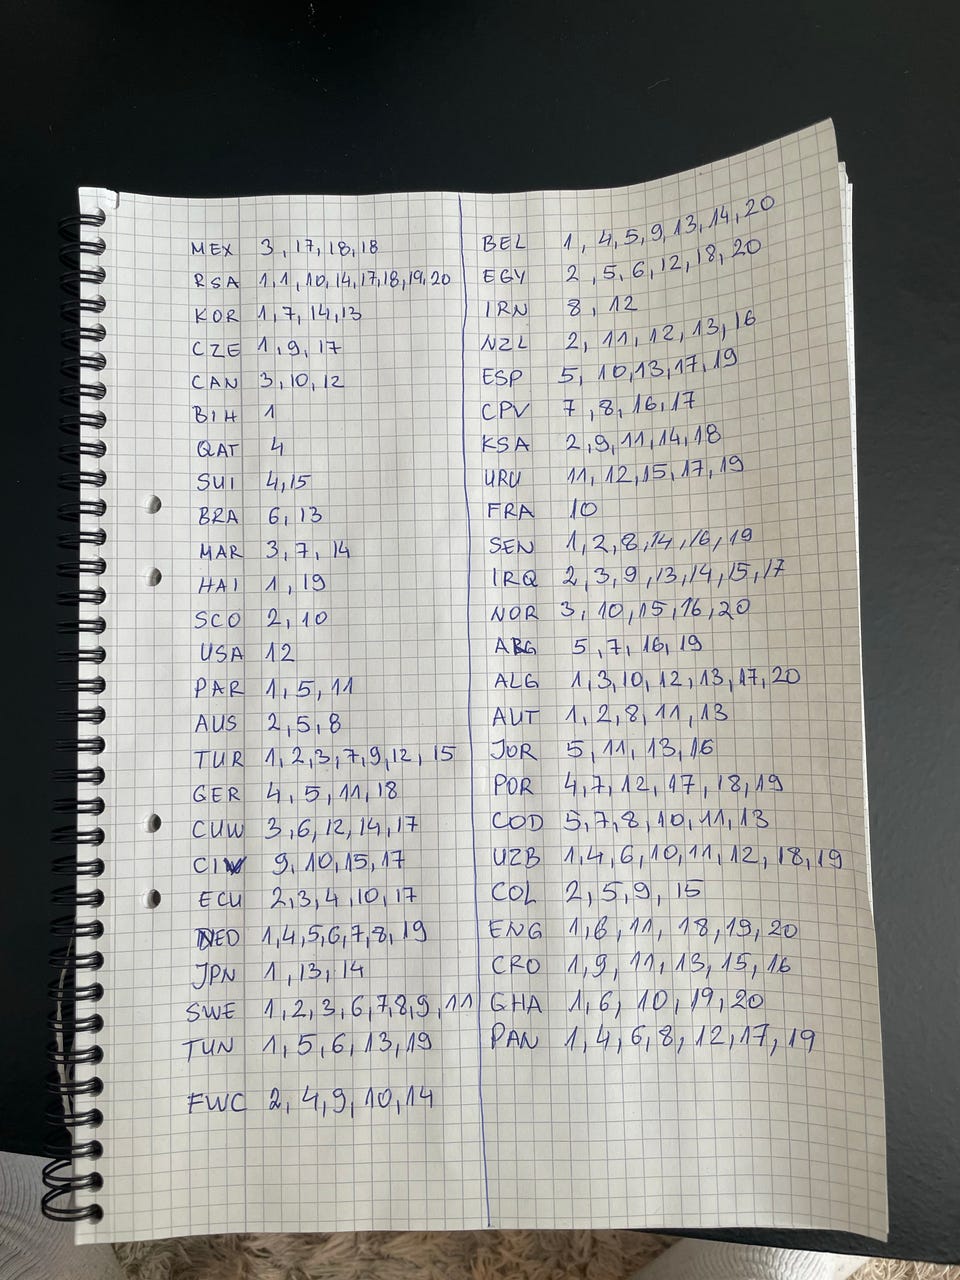 MEX 3, 17, 18, 18
RSA 1, 1, 10, 14, 17, 18, 19, 20
KOR 1, 7, 14, 13
CZE 1, 9, 17
CAN 3, 10, 12
BIH 1
QAT 4
SUI 4, 15
BRA 6, 13
MAR 3, 7, 14
HAI 1, 19
SCO 2, 10
USA 12
PAR 1, 5, 11
AUS 2, 5, 8
TUR 1, 2, 3, 7, 9, 12, 15
GER 4, 5, 11, 18
CUW 3, 6, 12, 14, 17
CIV 9, 10, 15, 17
ECU 2, 3, 4, 10, 17
NED 1, 4, 5, 6, 7, 8, 19
JPN 1, 13, 14
SWE 1, 2, 3, 6, 7, 8, 9, 11
TUN 1, 5, 6, 13, 19
FWC 2, 4, 9, 10, 14
BEL 1, 4, 5, 9, 13, 14, 20
EGY 2, 5, 6, 12, 18, 20
IRN 8, 12
NZL 2, 11, 12, 13, 16
ESP 5, 10, 13, 17, 19
CPV 7, 8, 16, 17
KSA 2, 9, 11, 14, 18
URU 11, 12, 15, 17, 19
FRA 10
SEN 1, 2, 8, 14, 16, 19
IRQ 2, 3, 9, 13, 14, 15, 17
NOR 3, 10, 15, 16, 20
ARG 5, 7, 16, 19
ALG 1, 3, 10, 12, 13, 17, 20
AUT 1, 2, 8, 11, 13
JOR 5, 11, 13, 16
POR 4, 7, 12, 17, 18, 19
COD 5, 7, 8, 10, 11, 13
UZB 1, 4, 6, 10, 11, 12, 18, 19
COL 2, 5, 9, 15
ENG 1, 6, 11, 18, 19, 20
CRO 1, 9, 11, 13, 15, 16
GHA 1, 6, 10, 19, 20
PAN 1, 4, 6, 8, 12, 17, 19